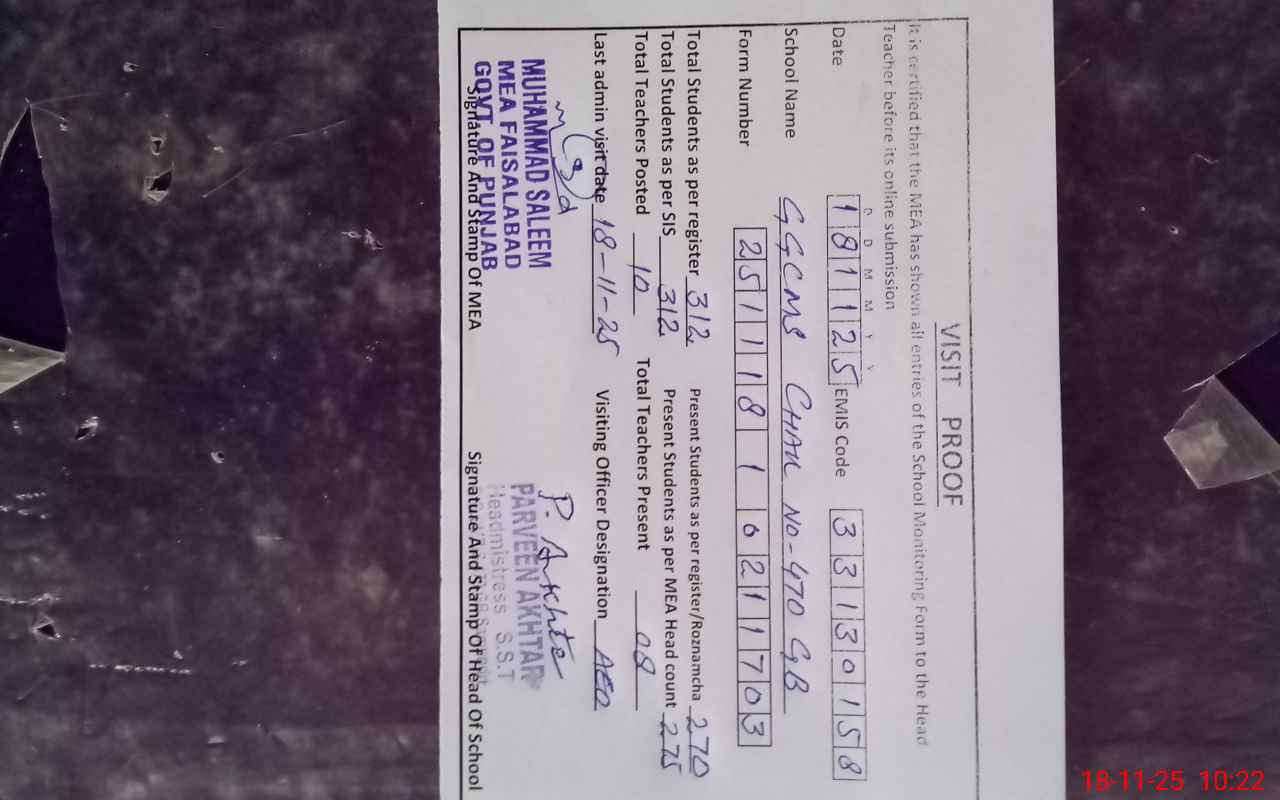 VISIT PROOF
It is certified that the MEA has shown all entries of the School Monitoring Form to the Head
Teacher before its online submission
D D M M Y Y
Date 1 8 1 1 2 5 EMIS Code 3 3 1 3 0 1 5 8
School Name GGCMS CHAK NO-470 GB
Form Number 2 5 1 1 1 8 1 1 6 2 1 1 7 0 3
Total Students as per register 312 Present Students as per register/Roznamcha 270
Total Students as per SIS 312 Present Students as per MEA Head count 275
Total Teachers Posted 10 Total Teachers Present 08
Last admin visit date 18-11-25 Visiting Officer Designation AEO
P. Akhtar
MUHAMMAD SALEEM
MEA FAISALABAD
GOVT. OF PUNJAB
PARVEEN AKHTAR
Headmistress S.S.T
Signature And Stamp Of MEA Signature And Stamp Of Head Of School
18-11-25 10:22